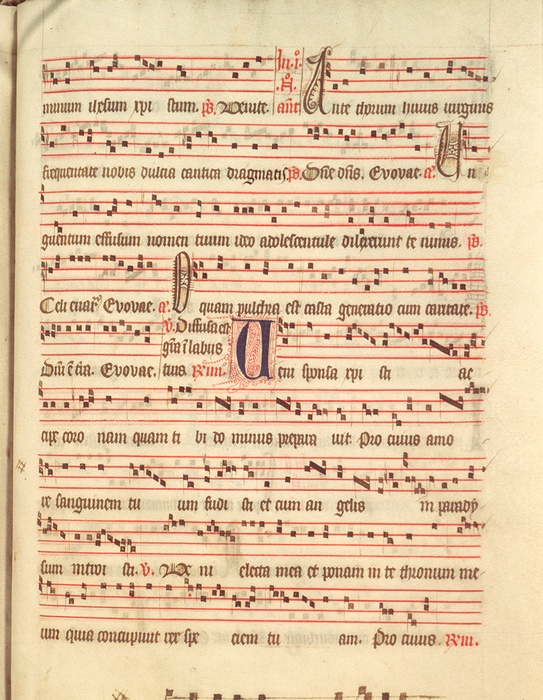 minum iħesum xpi stum. p̄s. Venite. In .i. N̄. añt Ante thorum huius uirginis
frequentate nobis dulcia cantica dragmatis. p̄s. Dñe dñs. Evovae. a̓. Un
guentum effusum nomen tuum ideo adolescentule dilexerunt te nimis. p̄s.
Celi enarr̄ Evovae. a̓. O quam pulchra est casta generatio cum caritate. p̄s.
v̓. Diffusa est
gr̄a ī labiis
Dñi ē t̓ra. Evovae. tuis. Veni sponsa xpi sti ac
cipe coro nam quam ti bi do minus prepara uit: Pro cuius amo
re sanguinem tu um fudi sti et cum an gelis in parady
sum introi sti. v̓. Ve ni electa mea et ponam in te thronum me
um quia concupiuit rex spe ciem tu am. Pro cuius